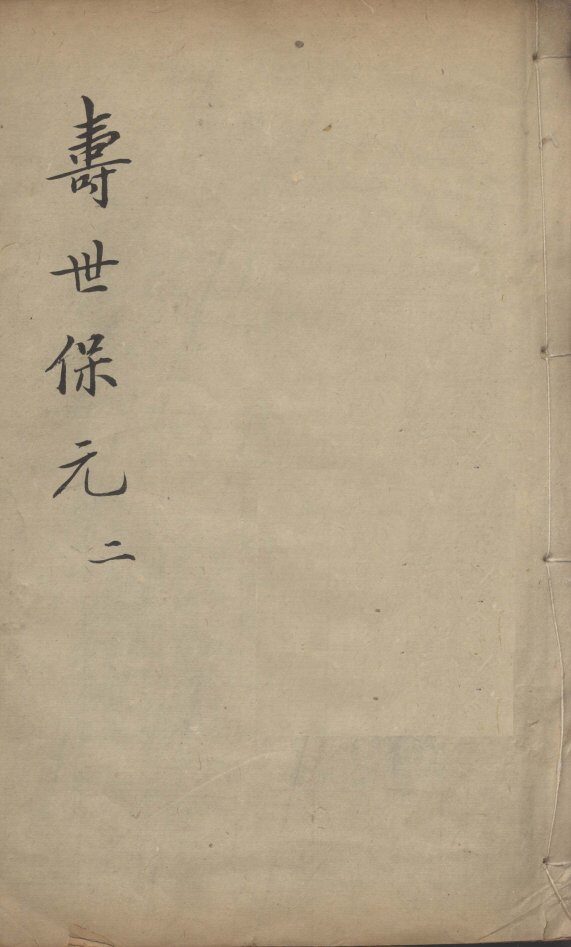 壽世保元二